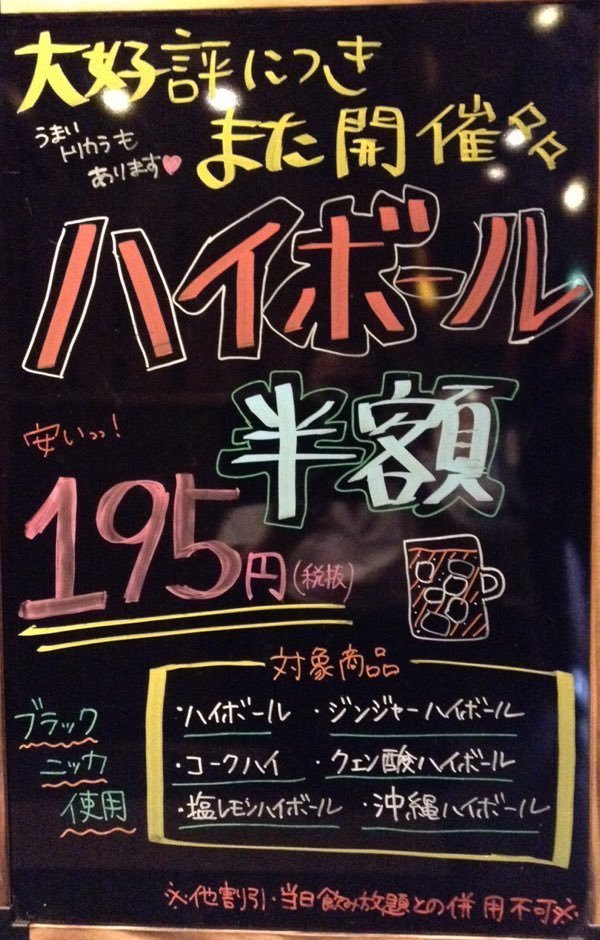 大好評につき
また開催
うまい
トリカラも
あります♥
ハイボール
半額
安いっっ!
195円(税抜)
対象商品
ブラック
ニッカ
使用
・ハイボール ・ジンジャーハイボール
・コークハイ ・クエン酸ハイボール
・塩レモンハイボール ・沖縄ハイボール
※他割引・当日飲み放題との併用不可※